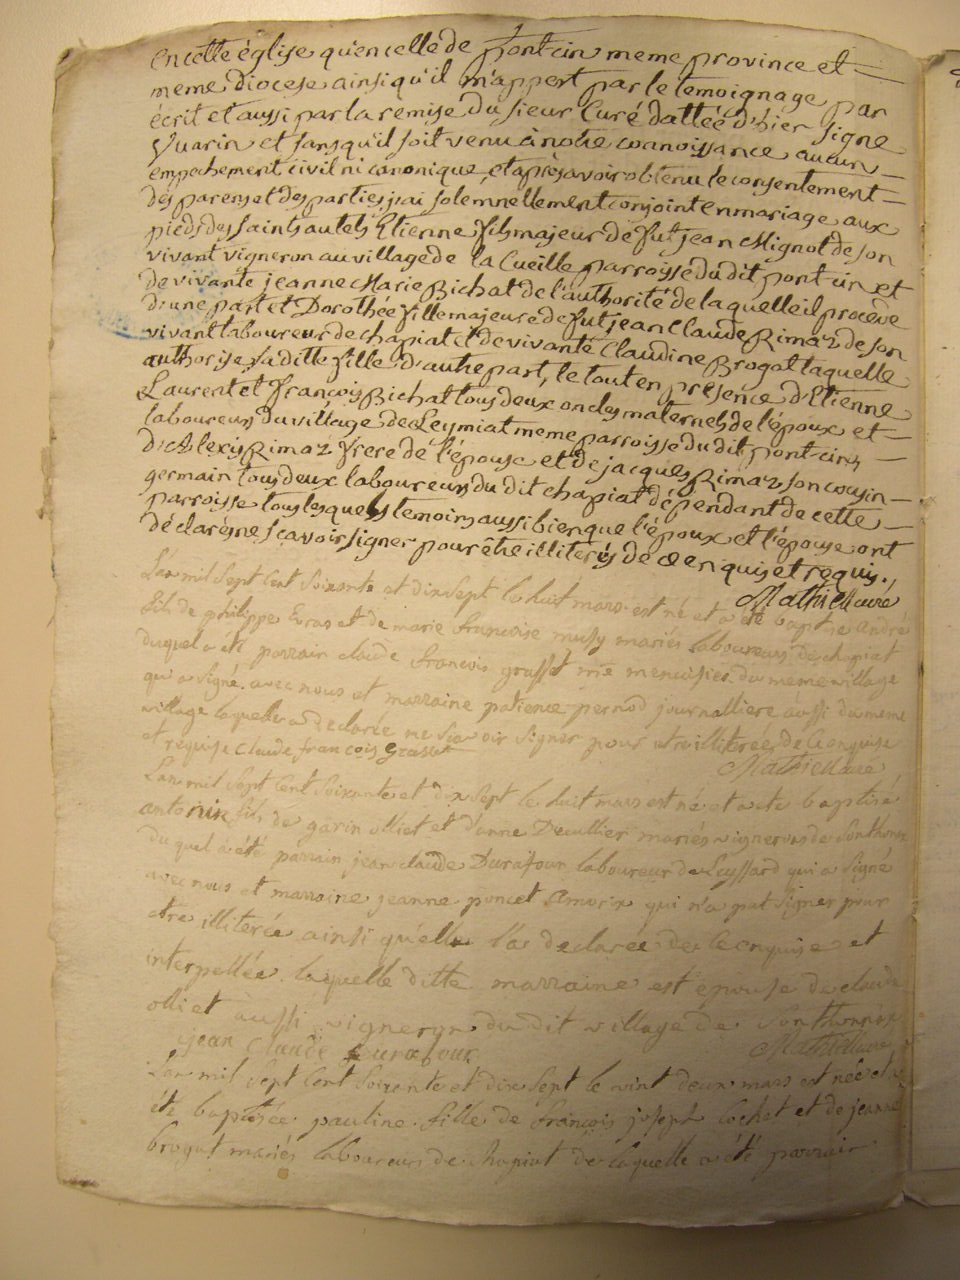 en cette église qu'en celle de pontcin meme province et
meme diocese ainsi qu'il m'appert par le temoignage par
écrit et aussi par la remise du sieur Curé dattéé d'hier signe
Vuarin et sans qu'il soit venu à notre connoissance aucun
empechement civil ni canonique, et après avoir obtenu le consentement
des parens et des parties j'ai solemnellement conjoint en mariage aux
pieds des saints autels Etienne fils majeur de fut jean Mignot de son
vivant vigneron au village de la Cueille parroisse du dit pontcin et
de vivante jeanne Marie Bichat de l'authorité de laquelle il procede
d'une part et Dorothée fille majeure de fut jean Claude Rimaz de son
vivant laboureur de chapiat et de vivante Claudine Brogat laquelle
authorise sa ditte fille d'autre part, le tout en presence d'Etienne
Laurent et françois Bichat tous deux oncles maternels de l'époux et
laboureurs du village de Leymiat meme parroisse du dit pontcin,
d'Alexis Rimaz frere de l'épouse et de jacques Rimaz son cousin
germain tous deux laboureurs du dit chapiat dépendant de cette
parroisse tous lesquels temoins aussi bien que l'époux et l'épouse ont
déclarés ne scavoir signer pour être illiterés de ce enquis et requis.
Mathieu curé
L'an mil sept cent soixante et dix sept le huit mars est né et a été baptisé andré
fils de philippe Evras et de marie francoise musy mariés laboureurs de chapiat
duquel a été parrain claude françois grasset me menuisier du meme village
qui a signé avec nous et marraine patience pernod journalliere aussi du meme
village laquelle a declarée ne scavoir signer pour etre illiterée de ce enquise
et requise Claude françois Grasset
Mathieu curé
L'an mil sept cent soixante et dix sept le huit mars est né et a été baptisé
antonin fils de garin olliet et d'anne Decullier mariés vignerons de Sonthonnax
duquel a été parrain jean claude Durafour laboureur de Leyssard qui a signé
avec nous et marraine jeanne poncet Amorix qui n'a put signer pour
etre illiterée ainsi qu'elle l'a declarée de ce enquise et
interpellée laquelle ditte marraine est épouse de claude
olliet aussi vigneron du dit village de Sonthonnax
jean Claude Durafour Mathieu curé
L'an mil sept cent soixante et dix sept le vint deux mars est née et a
été baptisée pauline fille de françois joseph Cochet et de jeanne
brogat mariés laboureurs de chapiat de laquelle a été parrain